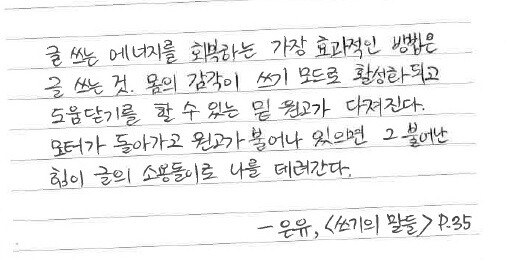 글 쓰는 에너지를 회복하는 가장 효과적인 방법은
글 쓰는 것. 몸의 감각이 쓰기 모드로 활성화되고
도움닫기를 할 수 있는 밑 원고가 다져진다.
모터가 돌아가고 원고가 불어나 있으면 그 불어난
힘이 글의 소용돌이로 나를 데려간다.
- 은유, <쓰기의 말들> P.35